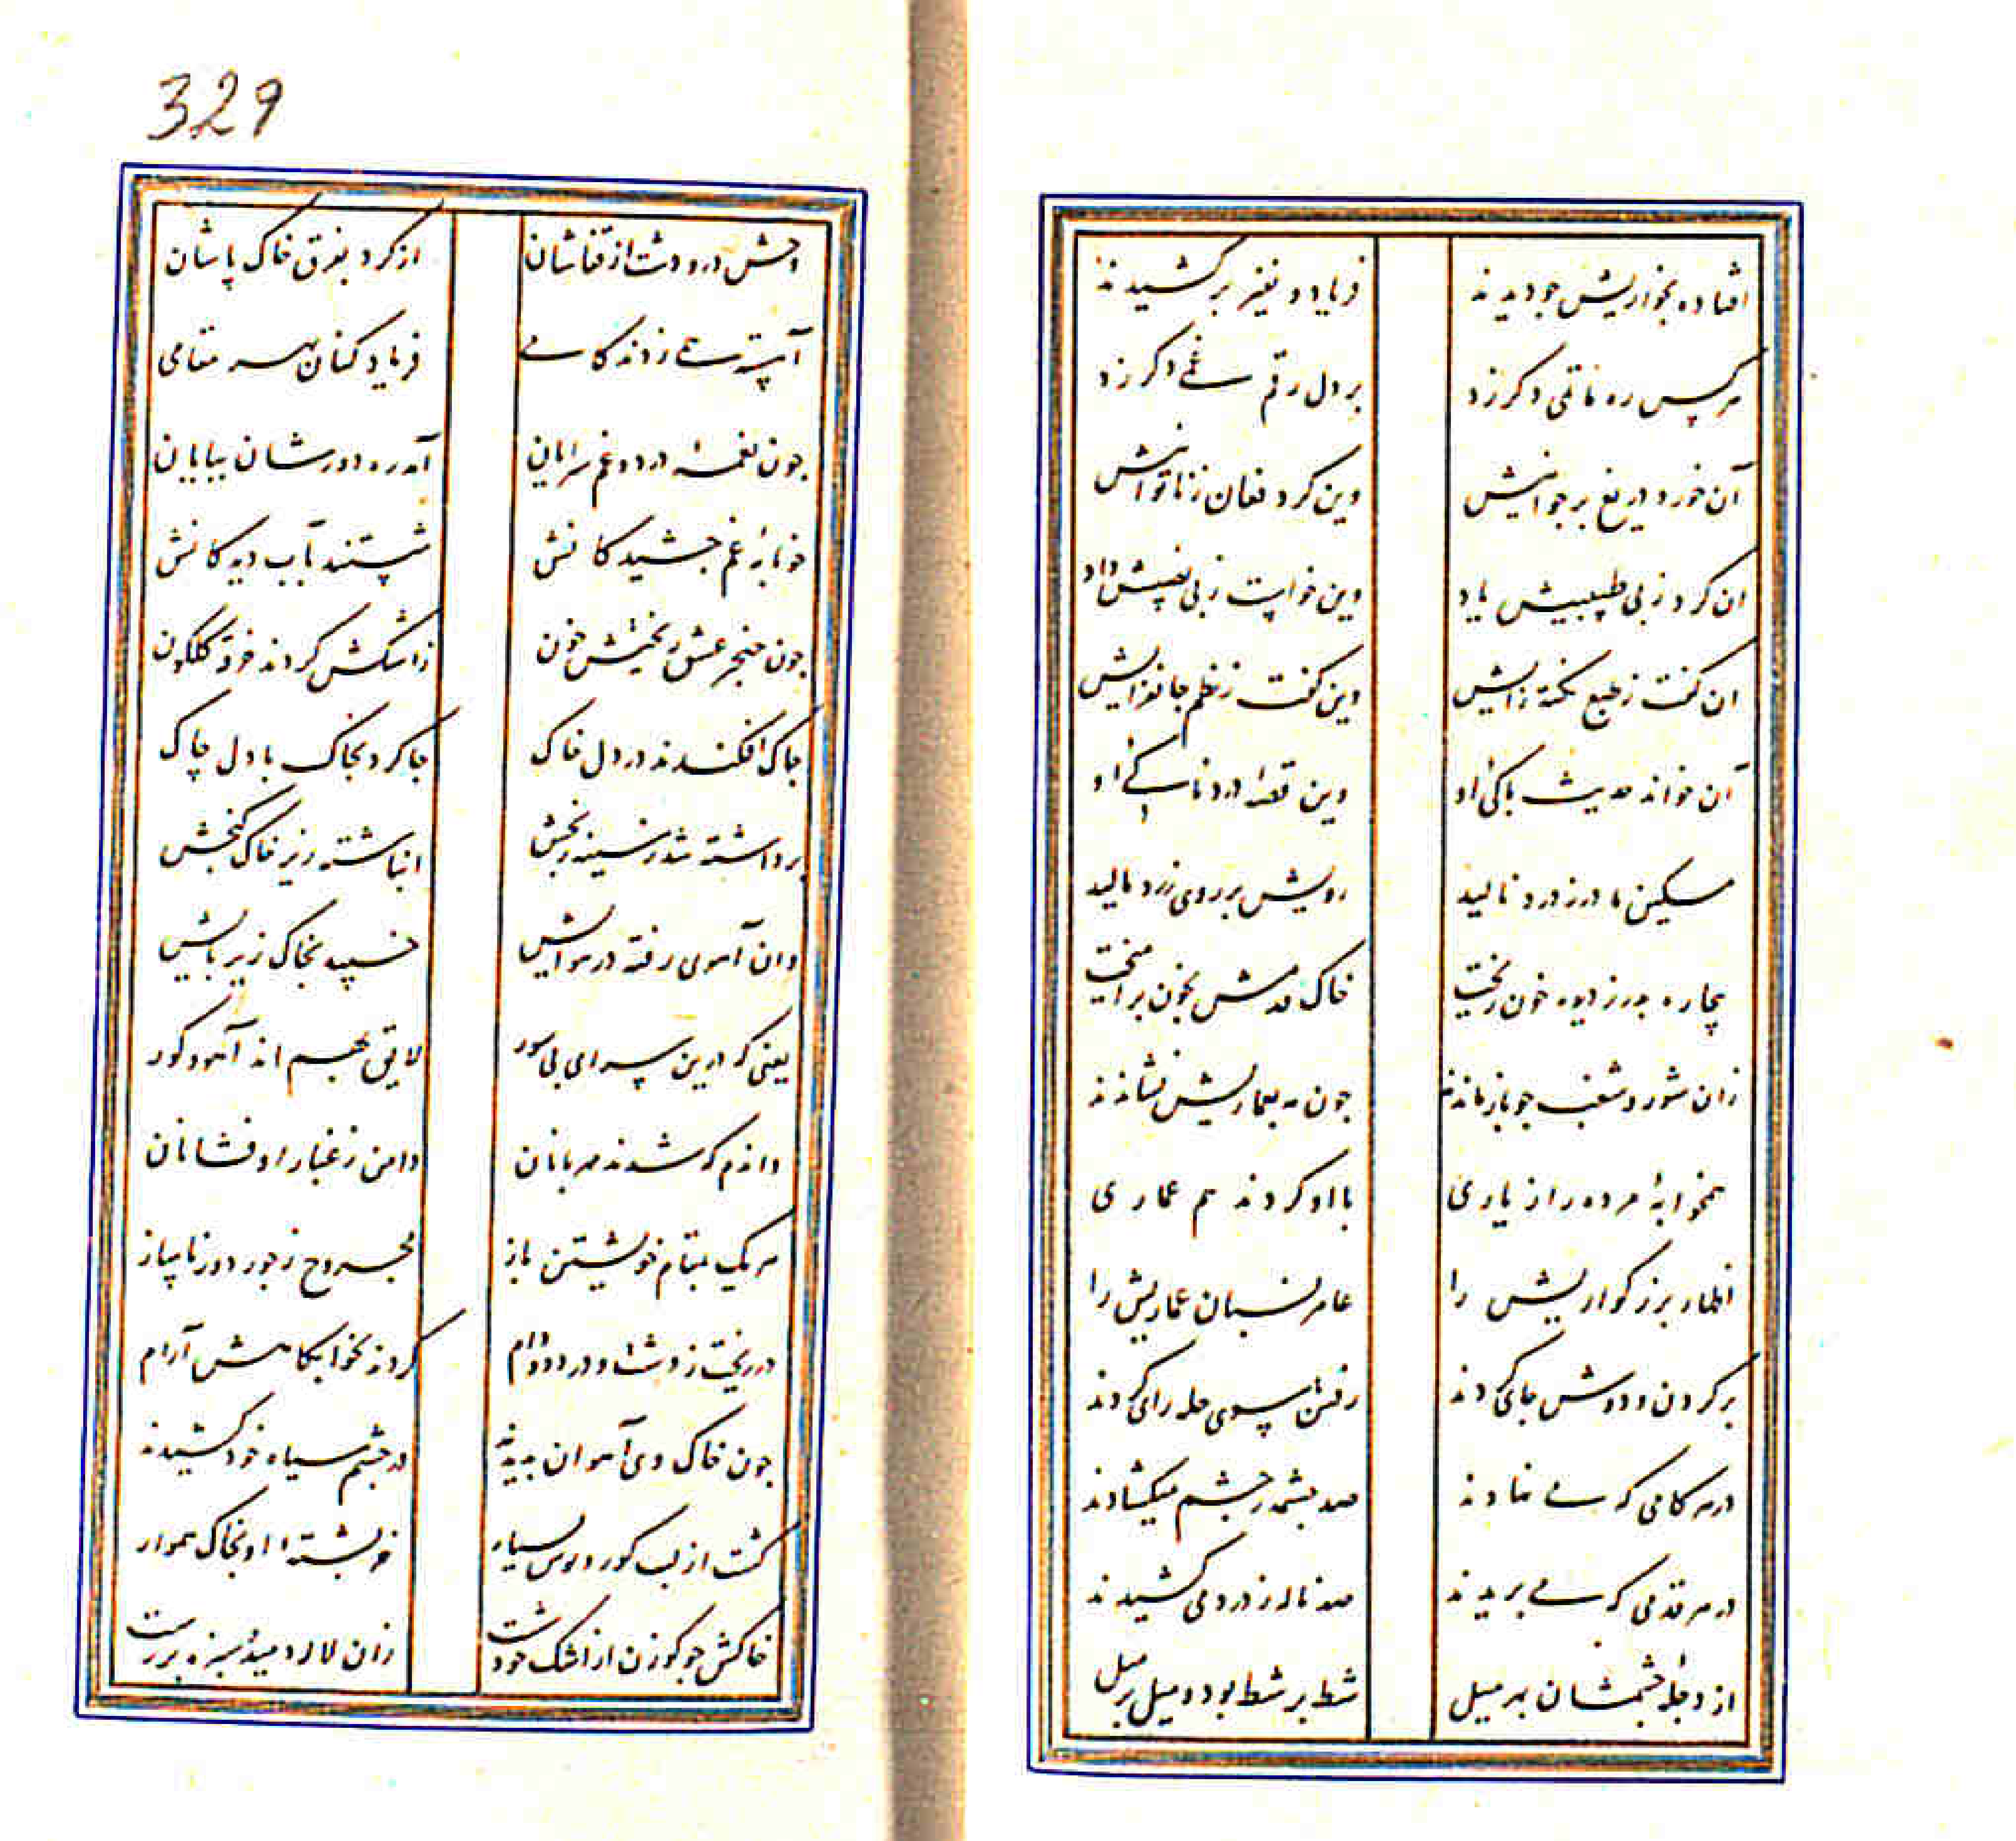 افتاده بخواریش جو دیدند فریاد و نفیر برکشیدند
هرکس ره ماتمی دکر زد بر دل رقم غمی دکر زد
آن خورد دریغ بر جوانیش وین کرد فغان ز ناتوانیش
ان کرد ز بی طبیبیش یاد وین خواست ز بی نصیبیش داد
ان کفت ز طبع نکته زایش وین کفت ز نظم جانفزایش
آن خواند حدیث باکی او وین قصهٔ دردناکی او
مسکین مادر ز درد نالید رویش بر روی زرد مالید
بیچاره بدر ز دیده خون ریخت خاک قدمش بخون برامیخت
زان شور و شغب جو بازماندند جون مه بعماریش نشاندند
همخوابهٔ مرده را ز یاری با او کردند هم عماری
اظهار بزرکواریش را عامر نسبان عماریش را
بر کردن و دوش جای کردند رفتن بسوی حله رای کردند
در هر کامی که می نهادند صد جشمه ز جشم میکشادند
در هر قدمی که می بریدند صد ناله ز درد می کشیدند
از دجلهٔ جشمشان بهر میل شط بر شط بود و میل بر میل
329
وحش در و دشت از قفاشان از کرد بفرق خاک پاشان
آهسته همی زدند کامی فریاد کنان بهر مقامی
جون نغمهٔ درد و غم سرایان آمد ره دورشان ببایان
خونابهٔ غم جشیدکانش شستند بآب دیدکانش
جون خنجر عشق ریختش خون ز اشکش کردند خرقه کلکون
جاک افکندند در دل خاک جا کرد بخاک با دل جاک
برداشته شد ز سینه رنجش انباشته زیر خاک کنجش
وان آهوی رفته در هوایش خسبید بخاک زیر بایش
یعنی که درین سرای بی سور لایق بهم اند آهو و کور
واندم که شدند مهربانان دامن ز غبار او فشانان
هر یک بمقام خویشتن باز مجروح ز جور دور ناساز
در ریخت ز دشت و در دد و دام کردند بخوابکاهش آرام
جون خاک وی آهوان بدیدند در جشم سیاه خود کشیدند
کشت از لب کور و بوس بسیار خر بشتهٔ او بخاک هموار
خاکش جو کوزن از اشک خود شست زان لاله دمید و سبزه بر رست